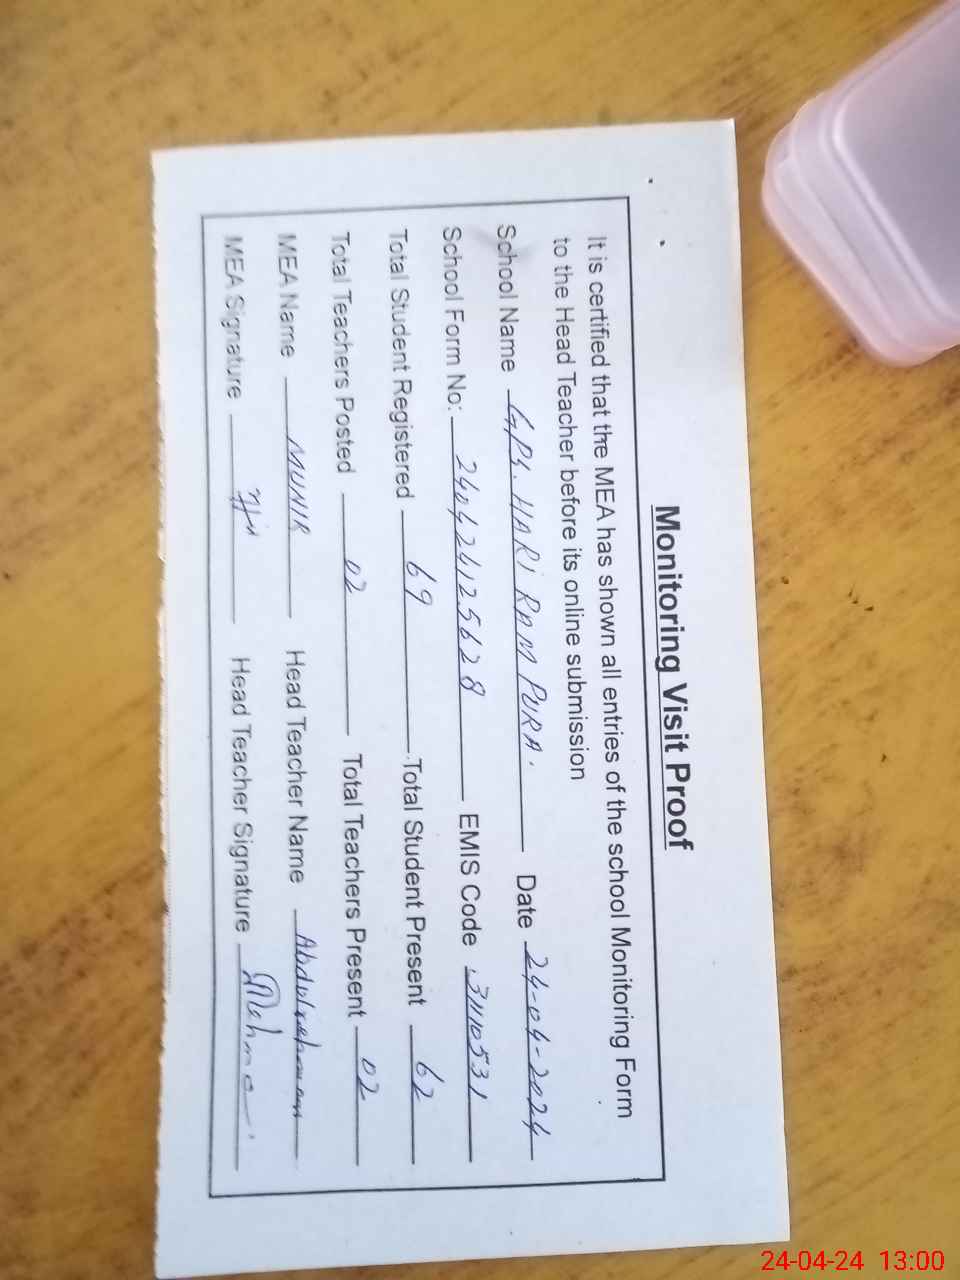 Monitoring Visit Proof
It is certified that the MEA has shown all entries of the school Monitoring Form
to the Head Teacher before its online submission
School Name GPS. HARI RAM PURA. Date 24-04-2024
School Form No: 240424125628 EMIS Code 31110531
Total Student Registered 69 Total Student Present 62
Total Teachers Posted 02 Total Teachers Present 02
MEA Name MUNIR Head Teacher Name Abdulrehman
MEA Signature Head Teacher Signature
24-04-24 13:00